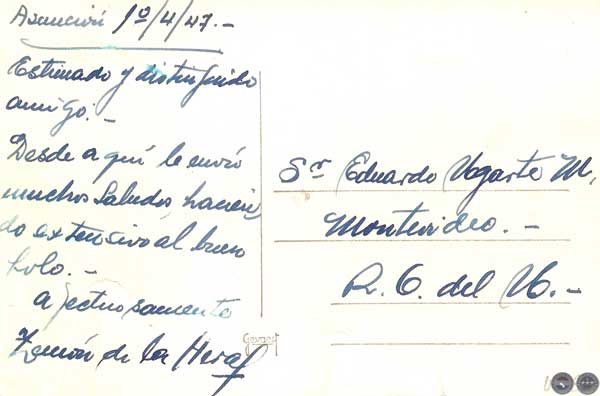 Asunción 1º/4/47.-
Estimado y distinguido
amigo:-
Desde aquí le envío
muchos saludos, hacien
do extensivo al buen
Lolo.-
afectuosamente
Zenón de la Heraf
Sr Eduardo Ugarte M,
Montevideo.-
R. O. del U.-